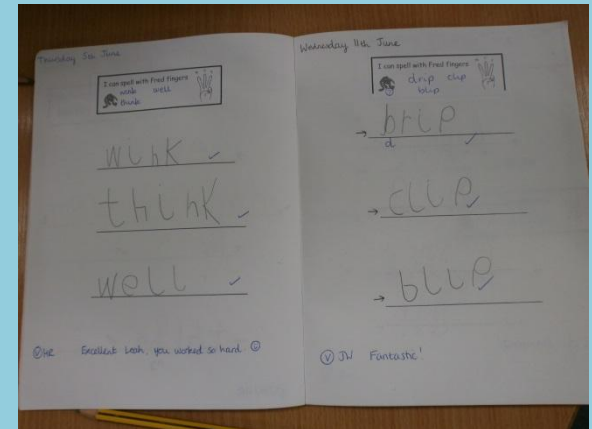 Thursday 5th June
I can spell with Fred Fingers
wink well
think
wink
think
well
HR Excellent Leah, you worked so hard.
Wednesday 11th June
I can spell with Fred Fingers
drip clip
blip
brip
d
clip
blip
V JW Fantastic!